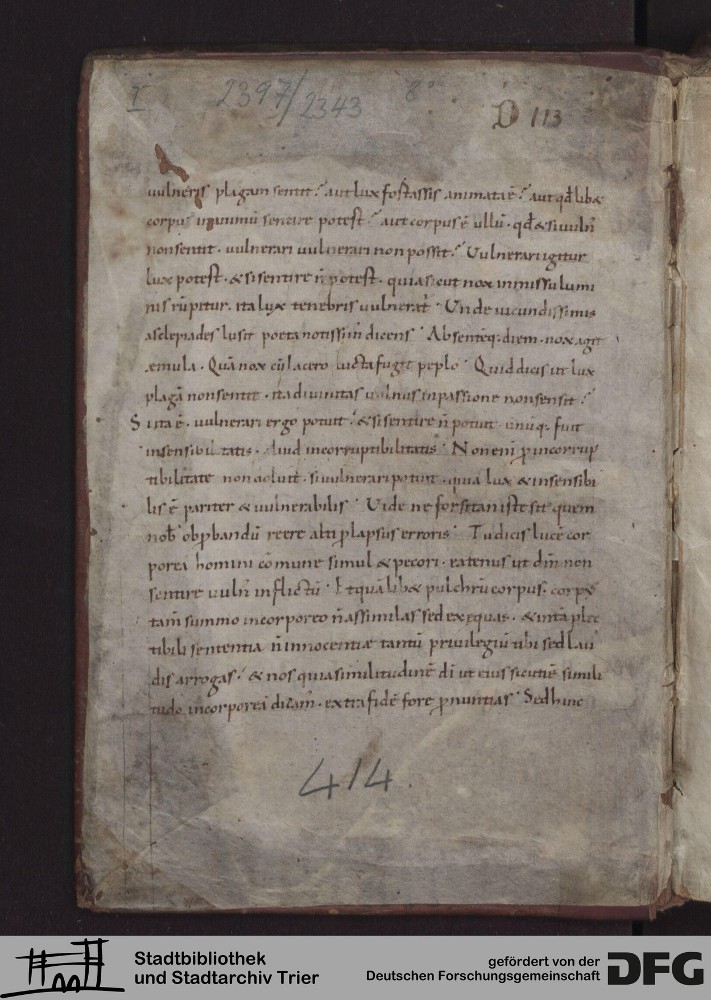 I 2397/2343 8° D 113
uulneris plagam sentit? aut lux forstassis animata ē? aut qđ lib&
corpus inanimū sentire potest? aut corpus ē ullū · qđ & si uuln̄
non sentit · uulnerari uulnerari non possit? Uulnerari igitur
lux potest · & si sentire n̄ potest · quia sicut nox inmissu lumi
nis rūpitur · ita lux tenebris uulnerat᷑ · Unde iucundissimus
asclepiades lusit poeta notissim᷒ dicens · Absenteq: diem · nox agit
æmula · Quā nox cū lacero luctafugit peplo · Quid dicis ut lux
plagā non sentit · ita diuinitas uulnus in passione non sensit?
Si ita ē · uulnerari ergo potuit? & si sentire n̄ potuit · unūq: fuit
insensibilitatis · aliud incorruptibilitatis · Non enī ꝓ incorrup
tibilitate non doluit · si uulnerari potuit · quia lux & insensibi
lis ē pariter & uulnerabilis · Uide ne forsitan iste sit quem
nob̄ obꝓbandū recte alti ꝓlapsus erroris · Tu dicis lucē cor
porea homini cōmune simul & pecori · eatenus ut dīn non
sentire uuln̄ inflictū · Et quālib& pulchrū corpus · corp᷒
tam̄ summo incorporeo n̄ assimilas sed exęquas · & intā plec
tibili sententia n̄ innocentiæ tantū priuilegiū tibi sed lau
dis arrogas? & nos quia similitudinē dī ut eius sicut ē simili
tudo incorporeā dicam̄ · extra fidē fore ꝓnuntias · Sed hinc
414.
Stadtbibliothek
und Stadtarchiv Trier
gefördert von der
Deutschen Forschungsgemeinschaft
DFG